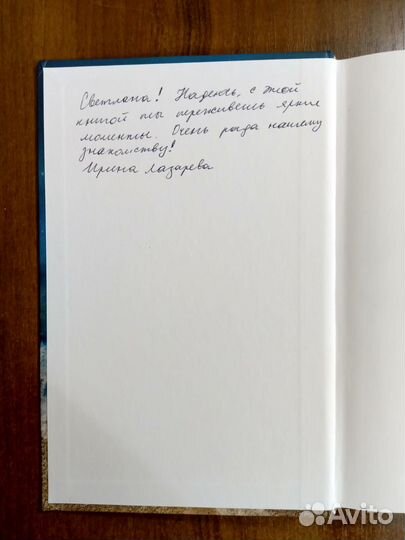 Светлана! Надеюсь, с этой
книгой ты переживешь яркие
моменты. Очень рада нашему
знакомству!
Ирина Лазарева
Avito